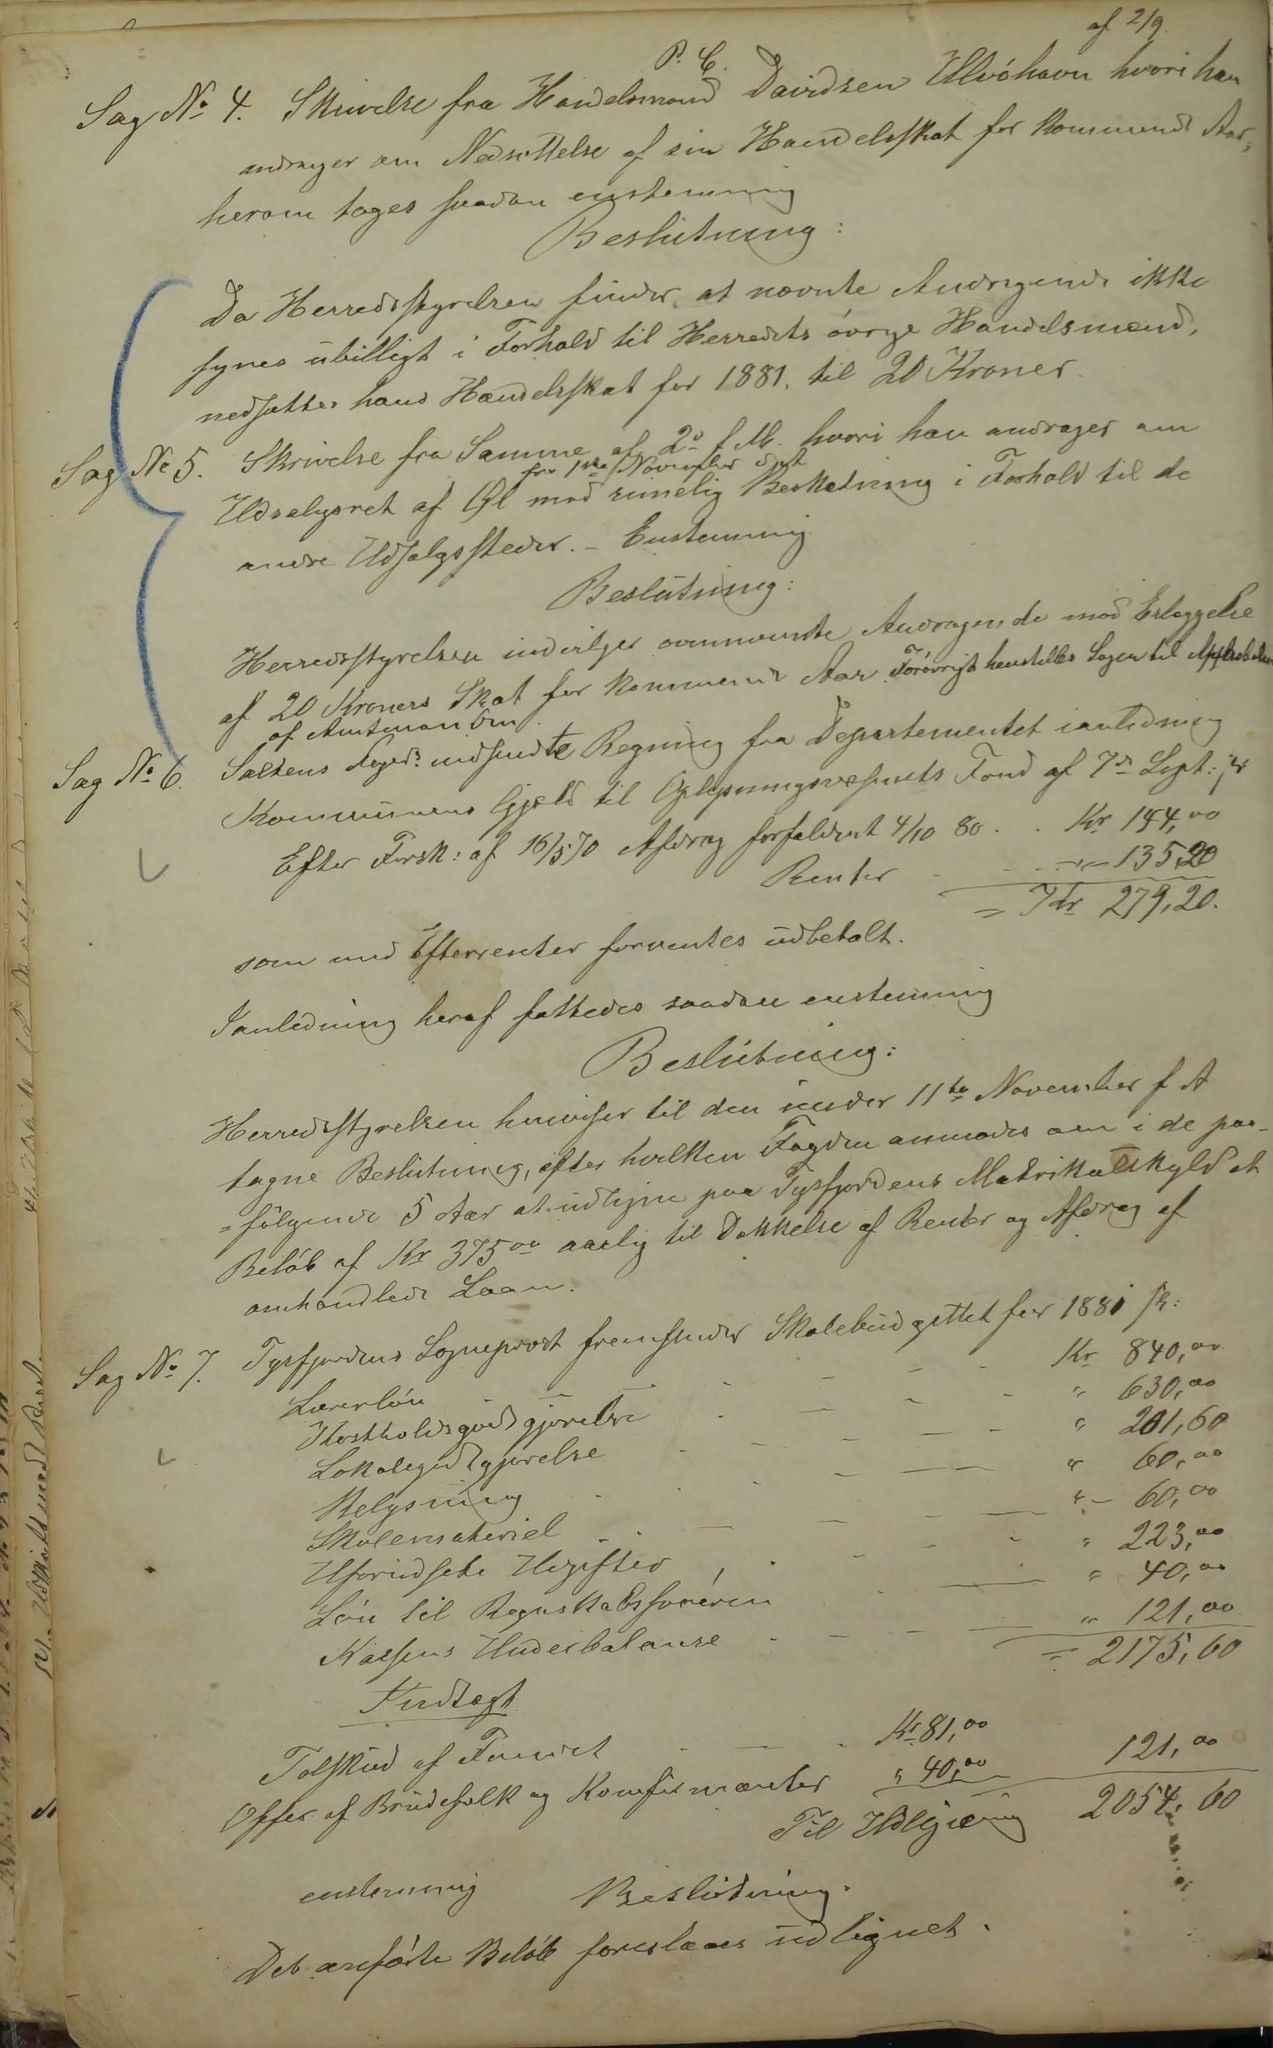 af 2/9.
P. C.
Sag No 4. Skrivelse fra Handelsmand Davidsen Ulvöhavn hvori han
andrager om Nedsættelse af sin Handelsskat for kommende Aar,
herom toges saadan enstemmig
Beslutning:
Da Herredsstyrelsen finder at nævnte Andragende ikke
synes ubilligt i Forhold til Herredets övrige Handelsmænd,
nedsættes hans Handelsskat for 1881. til 20 Kroner.
Sag No 5. Skrivelse fra Samme af 2d f. M. hvori han andrager om
fra 1ste November
Udsalgsret af Øl mod rimelig Beskatning i Forhold til de
andre Udsalgssteder. – Enstemmig
Beslutning:
Herredsstyrelsen indvilger ovennævnte Andragende mod Erlæggelse
af 20 Kroners Skat for kommende Aar Forövrigt henstilles Sagen til
af Amtmanden.
Sag No 6. Saltens Foged: indsendte Regning fra Departementet ianledning
Kommunens Gjæld til Oplysningsvæsenets Fond af 7de Sept:
Efter Forsk: af 16/5 70 Afdrag forfaldent 4/10 80 . . Kr 144,00
Renter . . . 135,20
= Kr 279,20.
som med Efterrenter forventes udbetalt.
Ianledning heraf fattedes saadan enstemmig
Beslutning:
Herredsstyrelsen henviser til den under 11te November f A
tagne Beslutning, efter hvilken Fogden anmodes om i de paa-
=fölgende 5 Aar at udligne paa Tysfjordens Matrikulskyld et
Beløb af Kr 375 00 aarlig til Dækkelse af Renter og Afdrag af
omhandlede Laan.
Sag No 7. Tysfjordens Sogneprest fremsender Skolebudgettet for 1881
Lærerlön Kr 840,00
Kostholdsgodtgjörelse " 630,00
Lokalegodtgjørelse " 201,60
Belysning " 60,00
Skolemateriel " – 60,00
Uforudsete Udgifter " 223,00
Lön til Regnskabsføreren " 40,00
Kassens Underbalanse " 121,00
= 2175,60
Indtægt
Tilskud af Fondet Kr 81,00
Offer af Brudefolk og Konfirmanter " 40,00 121,00
Til Udligning 2054,60
enstemmig Beslutning.
Det anförte Beløb foreslaaes udlignet.